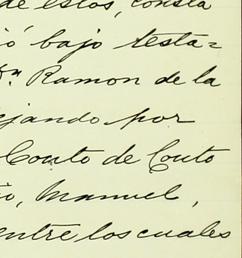 de estos, consta
ió bajo testa=
Dn Ramon de la
ejando por
Couto de Couto
io, Manuel,
entre los cuales